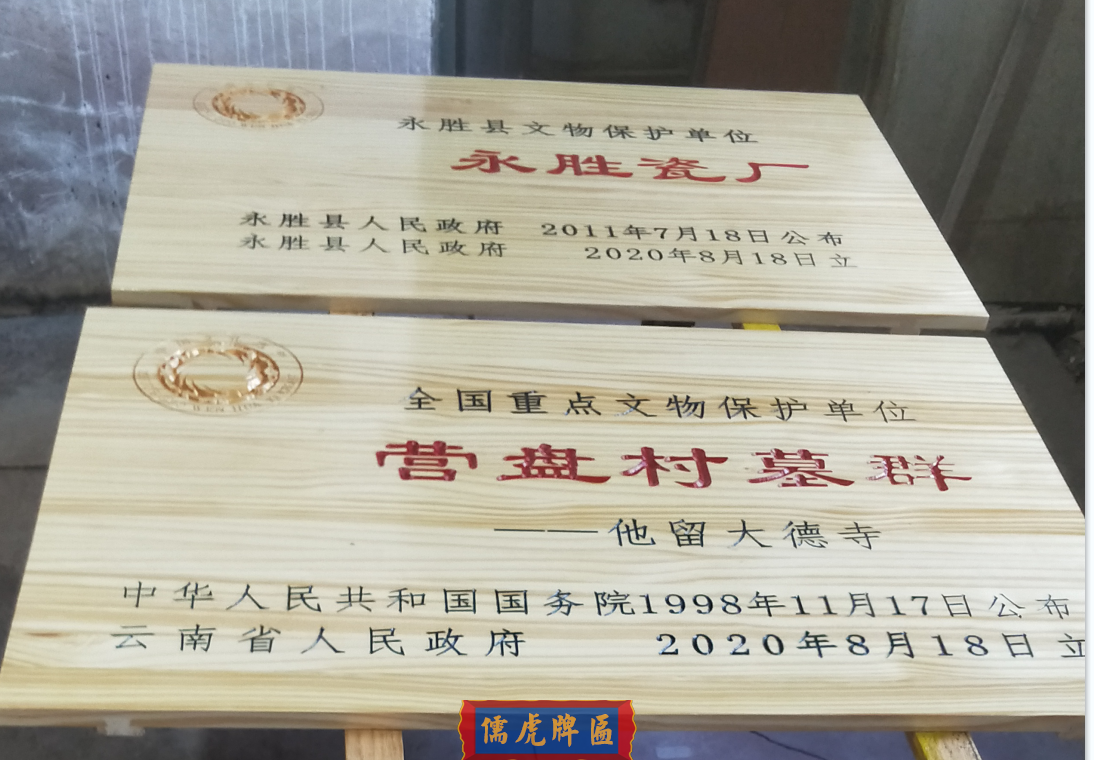 永胜县文物保护单位
永胜瓷厂
永胜县人民政府 2011年7月18日公布
永胜县人民政府 2020年8月18日立
全国重点文物保护单位
营盘村墓群
——他留大德寺
中华人民共和国国务院1998年11月17日公布
云南省人民政府 2020年8月18日立
儒虎牌匾